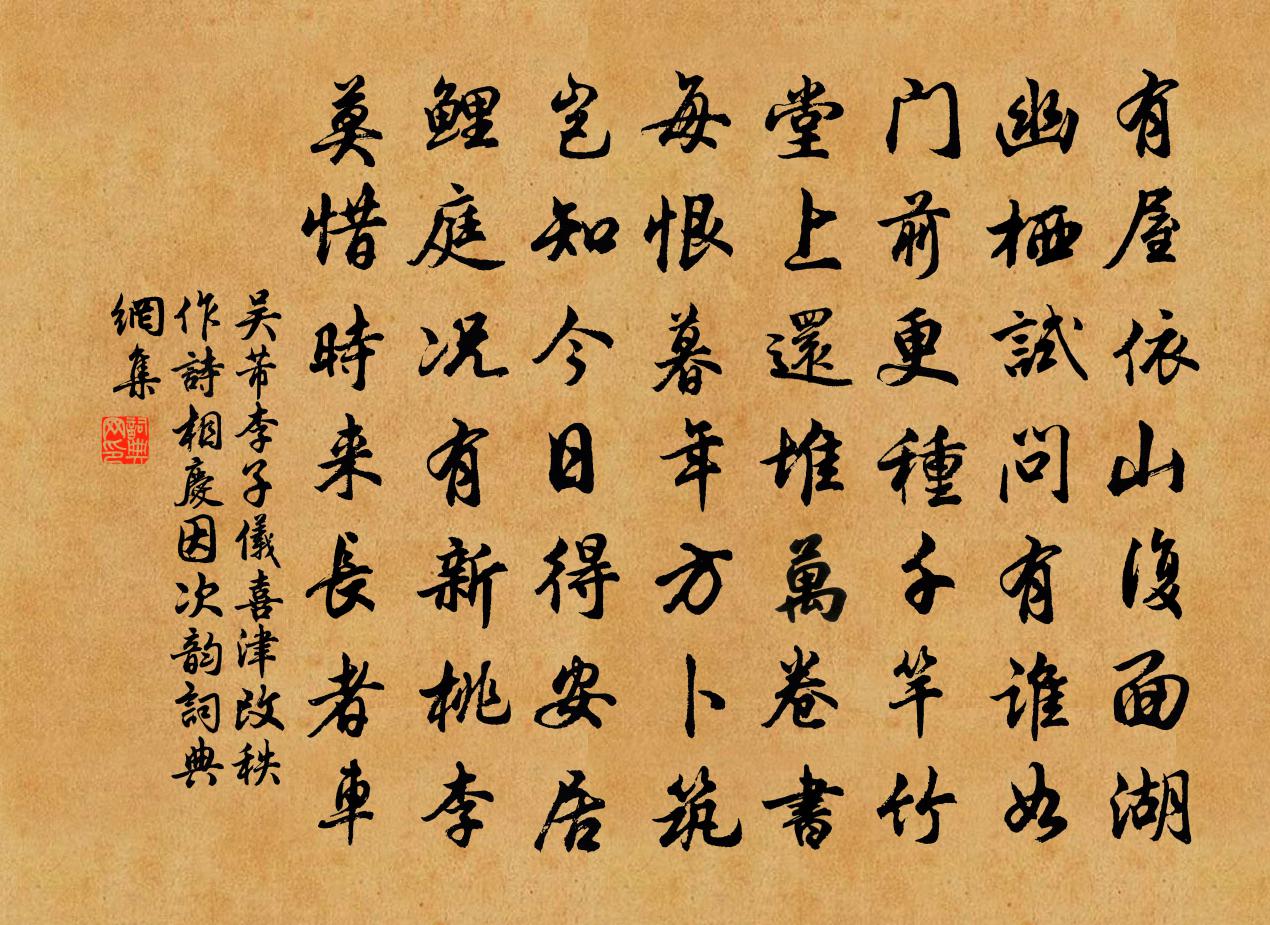 有屋依山復面湖
幽栖試問有誰如
门前更種千竿竹
堂上還堆萬卷書
每恨暮年方卜筑
岂知今日得安居
鯉庭况有新桃李
莫惜時来長者車
吴芾李子儀喜津改秩
作詩相慶因次韵詞典
網集
詞典
网印